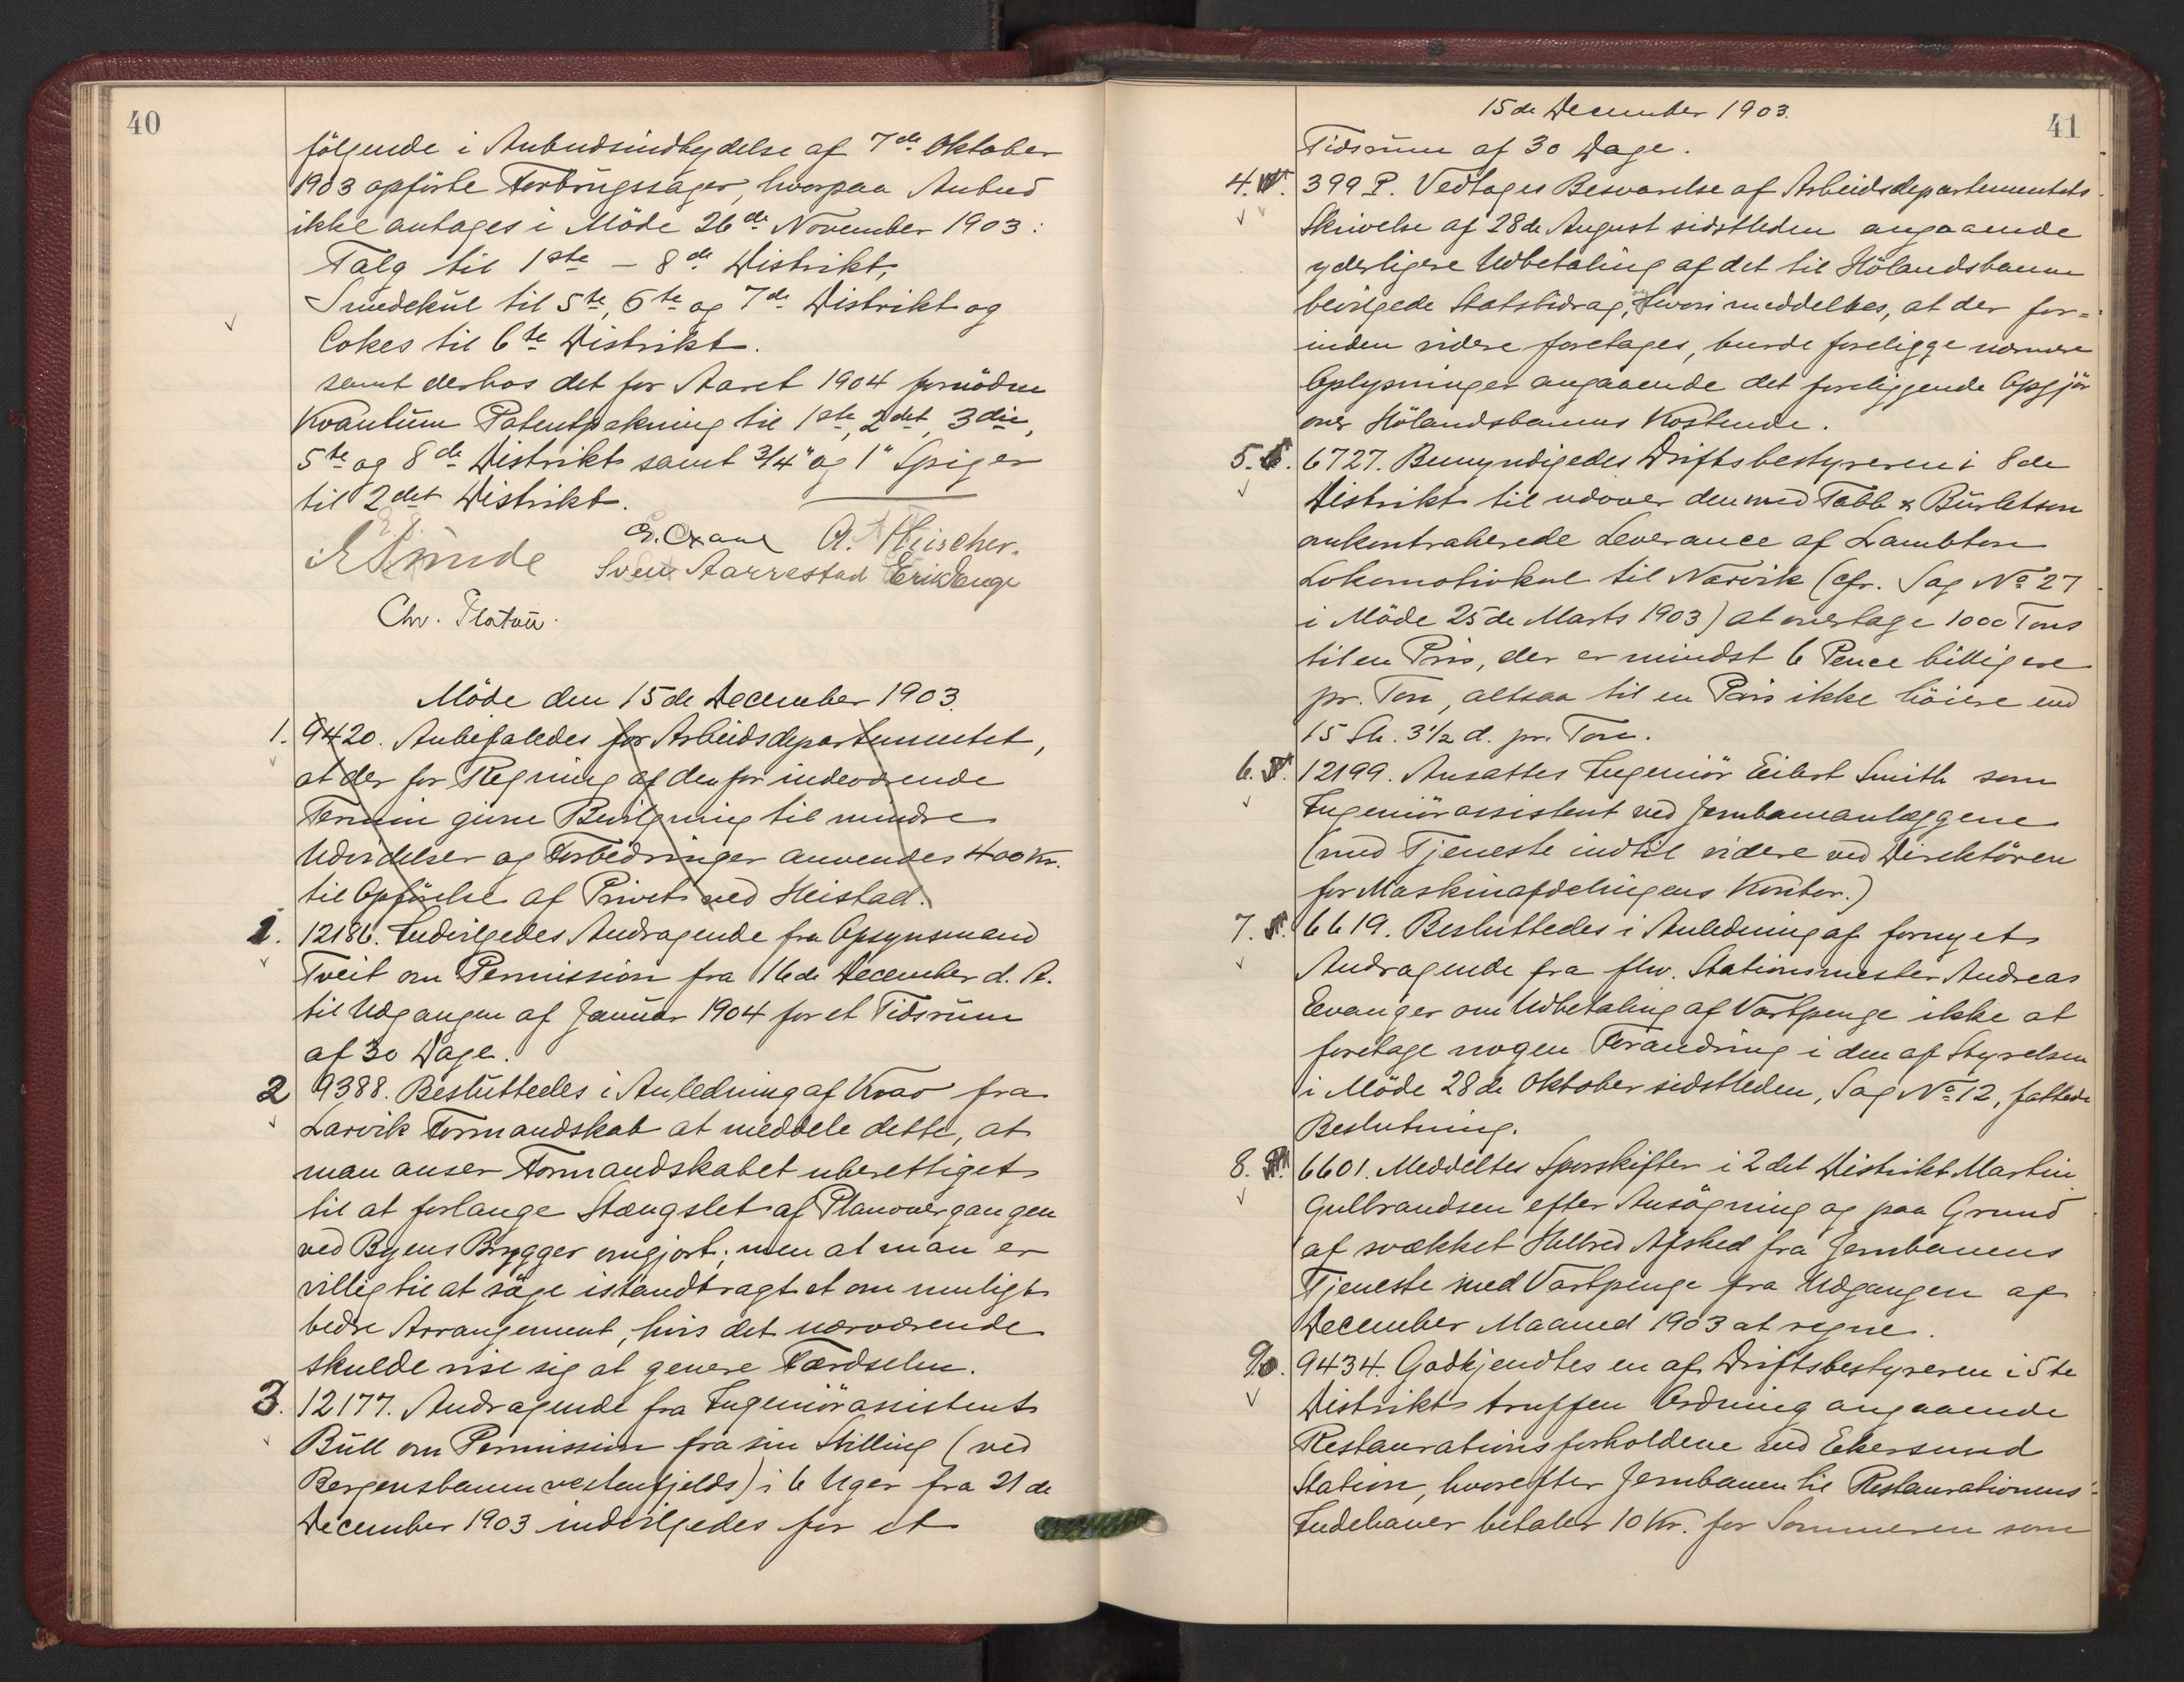 40
følgende i Anbudsindbydelse af 7de Oktober
1903 opførte Forbrugssager, hvorpaa Anbud
ikke antages i Möde 26de November 1903:
Talg til 1ste – 8de Distrikt,
Smedekul til 5te, 6te og 7de Distrikt og
Cokes til 6te Distrikt.
samt derhos det for Aaret 1904 fornödne
Kvantum Patentpakning til 1ste, 2det, 3die,
5te og 8de Distrikt samt 3/4" og 1" Spiger
til 2det Distrikt.
E. Sunde E. Crane A. Fleischer.
Svein Aarrestad Erik Enge
Chr. Platou.
Möde den 15de December 1903.
1. 9420. Anbefaledes for Arbeidsdepartementet,
at der for Regning af den for indeværende
Termin givne Bevilgning til mindre
Udvidelser og Forbedringer anvendes 400 Kr.
til Opförelse af Privet ved Heistad.
1. 12186. Indvilgedes Andragende fra Opsynsmand
Tveit om Permission fra 16de December d. A.
til Udgangen af Januar 1904 for et Tidsrum
af 30 Dage.
2 9388. Besluttedes i Anledning af Krav fra
Larvik Formandskab at meddele dette, at
man anser Formandskabet uberettiget
til at forlange Stængslet af Planovergangen
ved Byens Brygger omgjort; men at man er
villig til at söge istandbragt et om muligt
bedre Arrangement, hvis det nærværende
skulde vise sig at genere Færdselen.
3. 12177. Andragende fra Ingeniörassistent
Bull om Permission fra sin Stilling (ved
Bergensbanen vestenfjelds) i 6 Uger fra 21de
December 1903 indvilgedes for et
15de December 1903.
41
Tidsrum af 30 Dage.
4. 399 P. Vedtages Besvarelse af Arbeidsdepartementets
Skrivelse af 28de August sidstleden angaaende
yderligere Udbetaling af det til Hölandsbanen
bevilgede Statsbidrag, hvori meddeltes, at der for-
inden videre foretages, burde foreligge nærmere
Oplysninger angaaende det foreliggende Opgjör
over Hölandsbanens Kostende.
5. 6727. Bemyndigedes Driftsbestyreren i 8de
Distrikt til udover den med Tabb & Burletson
ankontraherede Leverance af Lambton
Lokomotivkul til Narvik (cfr. Sag No 27
i Möde 25de Marts 1903) at overtage 1000 Tons
til en Pris, der er mindst 6 Pence billigere
pr. Ton, altsaa til en Pris ikke höiere end
15 Sh. 3 1/2 d. pr. Ton.
6. 12199. Ansattes Ingeniör Eilert Smith som
Ingeniörassistent ved Jernbaneanlæggene
(med Tjeneste indtil videre ved Direktören
for Maskinafdelingens Kontor.)
7. 6619. Besluttedes i Anledning af fornyet
Andragende fra fhv. Stationsmester Andreas
Evanger om Udbetaling af Vartpenge ikke at
foretage nogen Forandring i den af Styrelsen
i Möde 28de Oktober sidstleden, Sag No 12, fattede
Beslutning.
8. 6601. Meddeltes Sporskifter i 2det Distrikt Martin
Gulbrandsen efter Ansögning og paa Grund
af svækket Helbred Afsked fra Jernbanens
Tjeneste med Vartpenge fra Udgangen af
December Maaned 1903 at regne.
9. 9434. Godkjendtes en af Driftsbestyreren i 5te
Distrikt truffen Ordning angaaende
Restaurationsforholdene ved Ekersund
Station, hvorefter Jernbanen til Restaurationens
Indehaver betaler 10 Kr. for Sommeren som